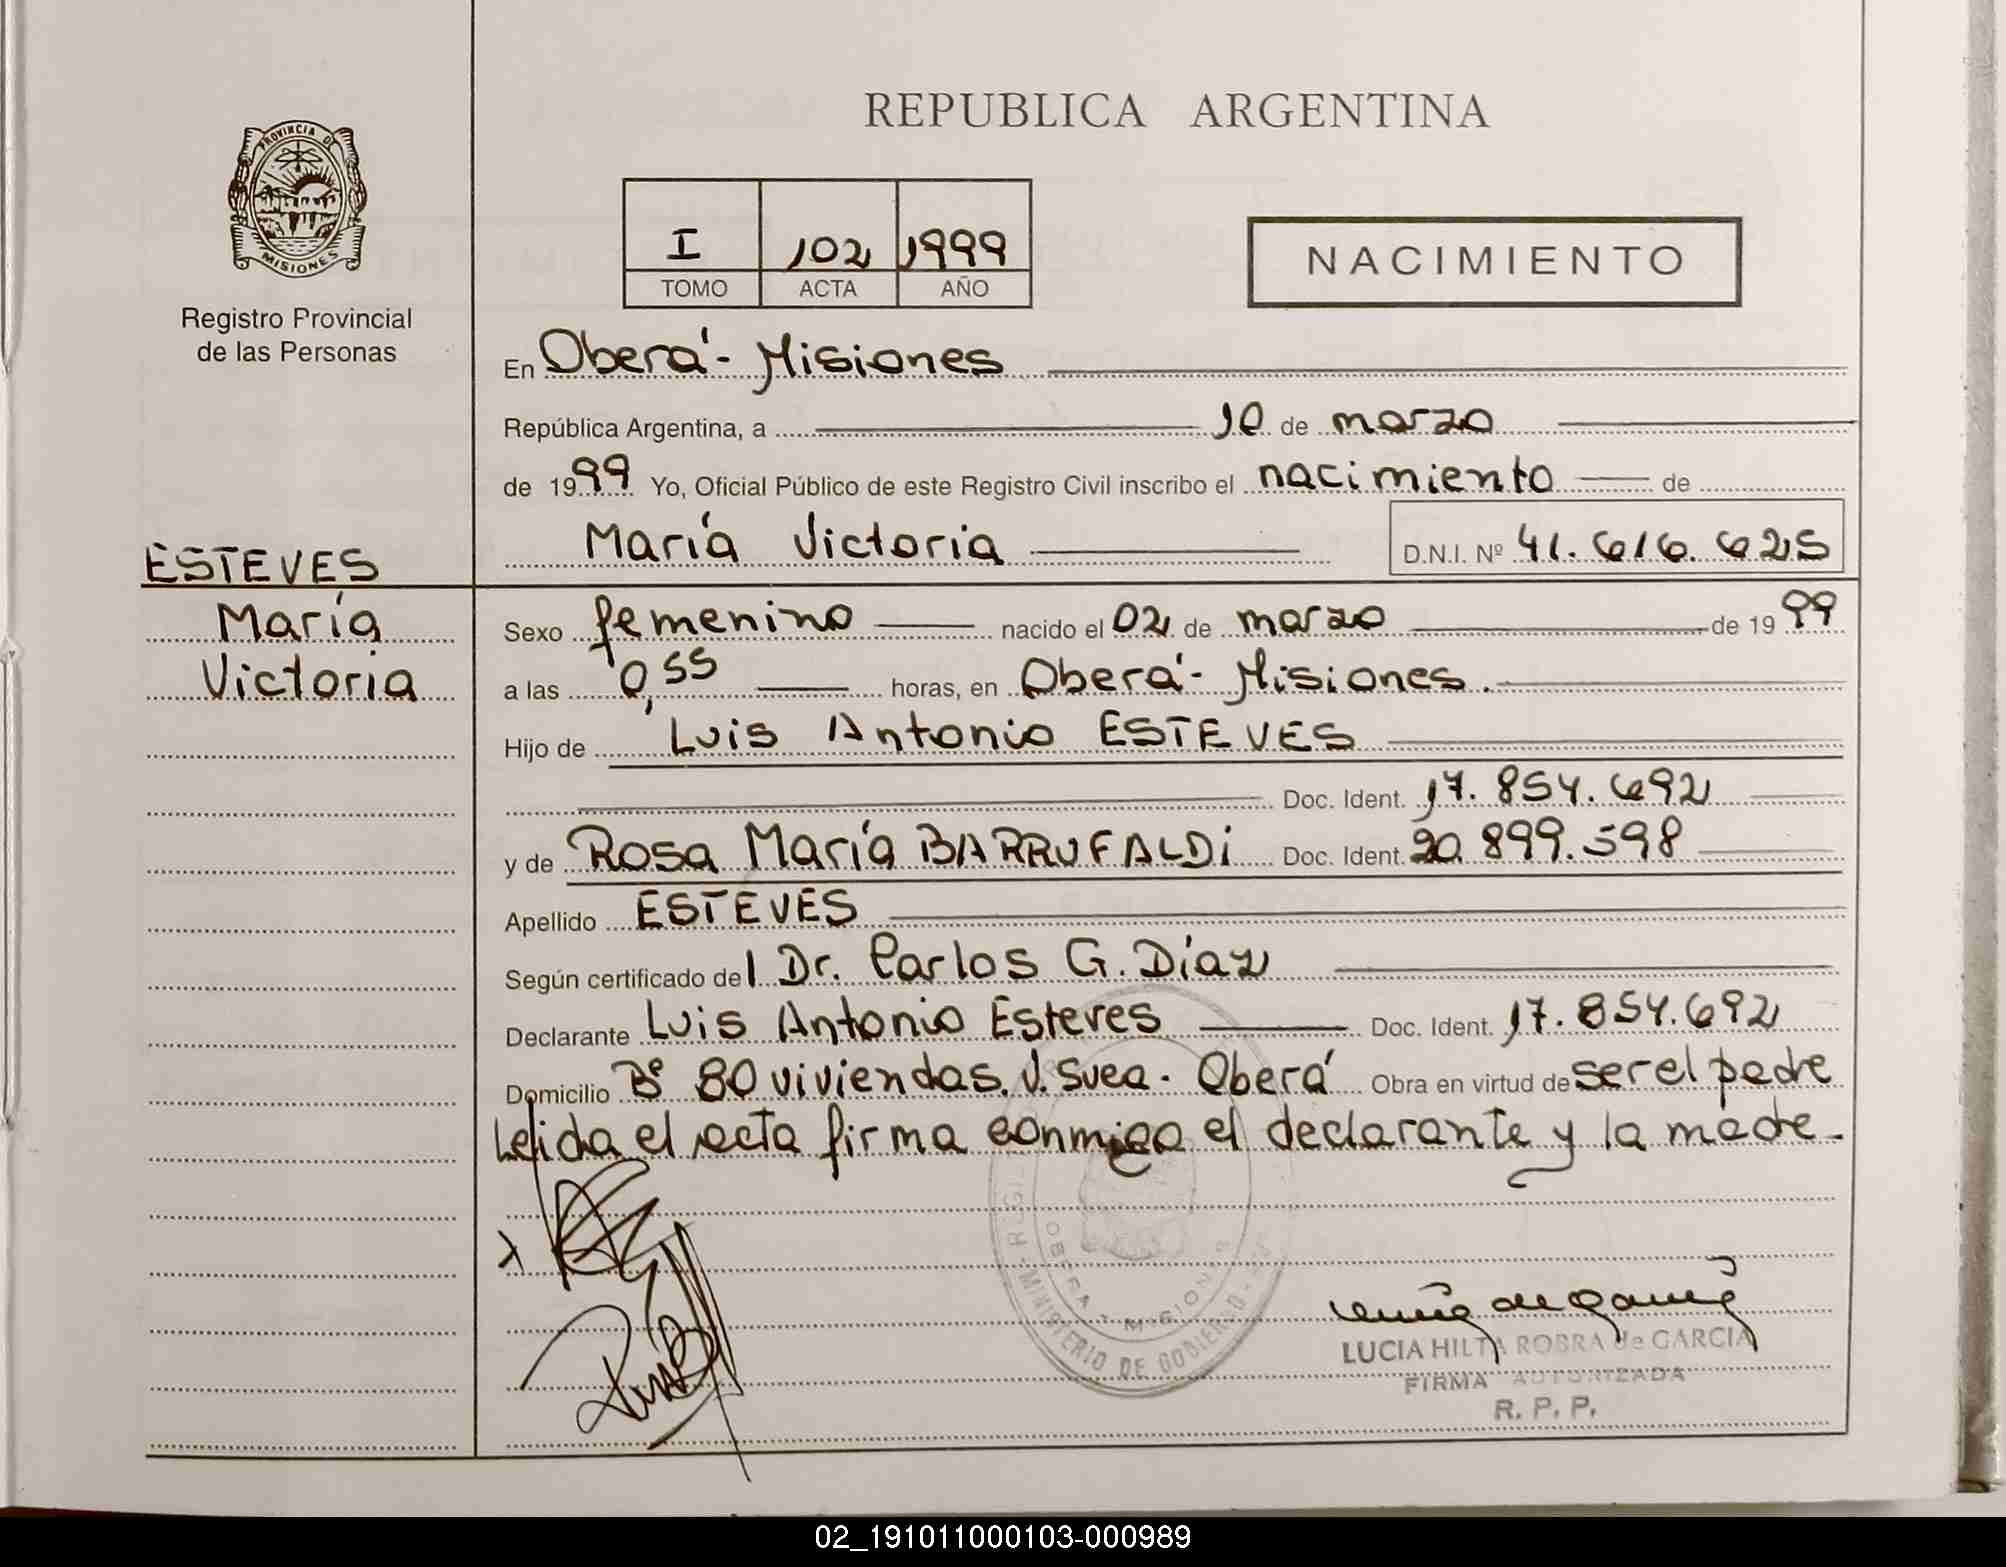 REPUBLICA ARGENTINA
PROVINCIA DE
MISIONES
Registro Provincial
de las Personas
I 102 1999
TOMO ACTA AÑO
NACIMIENTO
En Oberá - Misiones
República Argentina, a 10 de marzo
de 1999 Yo, Oficial Público de este Registro Civil inscribo el nacimiento de
María Victoria D.N.I. Nº 41.616.625
ESTEVES
María
Victoria
Sexo femenino nacido el 02 de marzo de 1999
a las 0,55 horas, en Oberá - Misiones.
Hijo de Luis Antonio ESTEVES
Doc. Ident. 17.854.692
y de Rosa María BARRUFALDI Doc. Ident. 20.899.598
Apellido ESTEVES
Según certificado del Dr. Carlos G. Díaz
Declarante Luis Antonio Esteves Doc. Ident. 17.854.692
Domicilio Bº 80 viviendas. V. Svea. Oberá Obra en virtud de ser el padre
Leída el acta firma conmigo el declarante y la madre.
OBERA MISIONES
MINISTERIO DE GOBIERNO
LUCIA HILTA ROBRA de GARCIA
FIRMA AUTORIZADA
R. P. P.
02_191011000103-000989